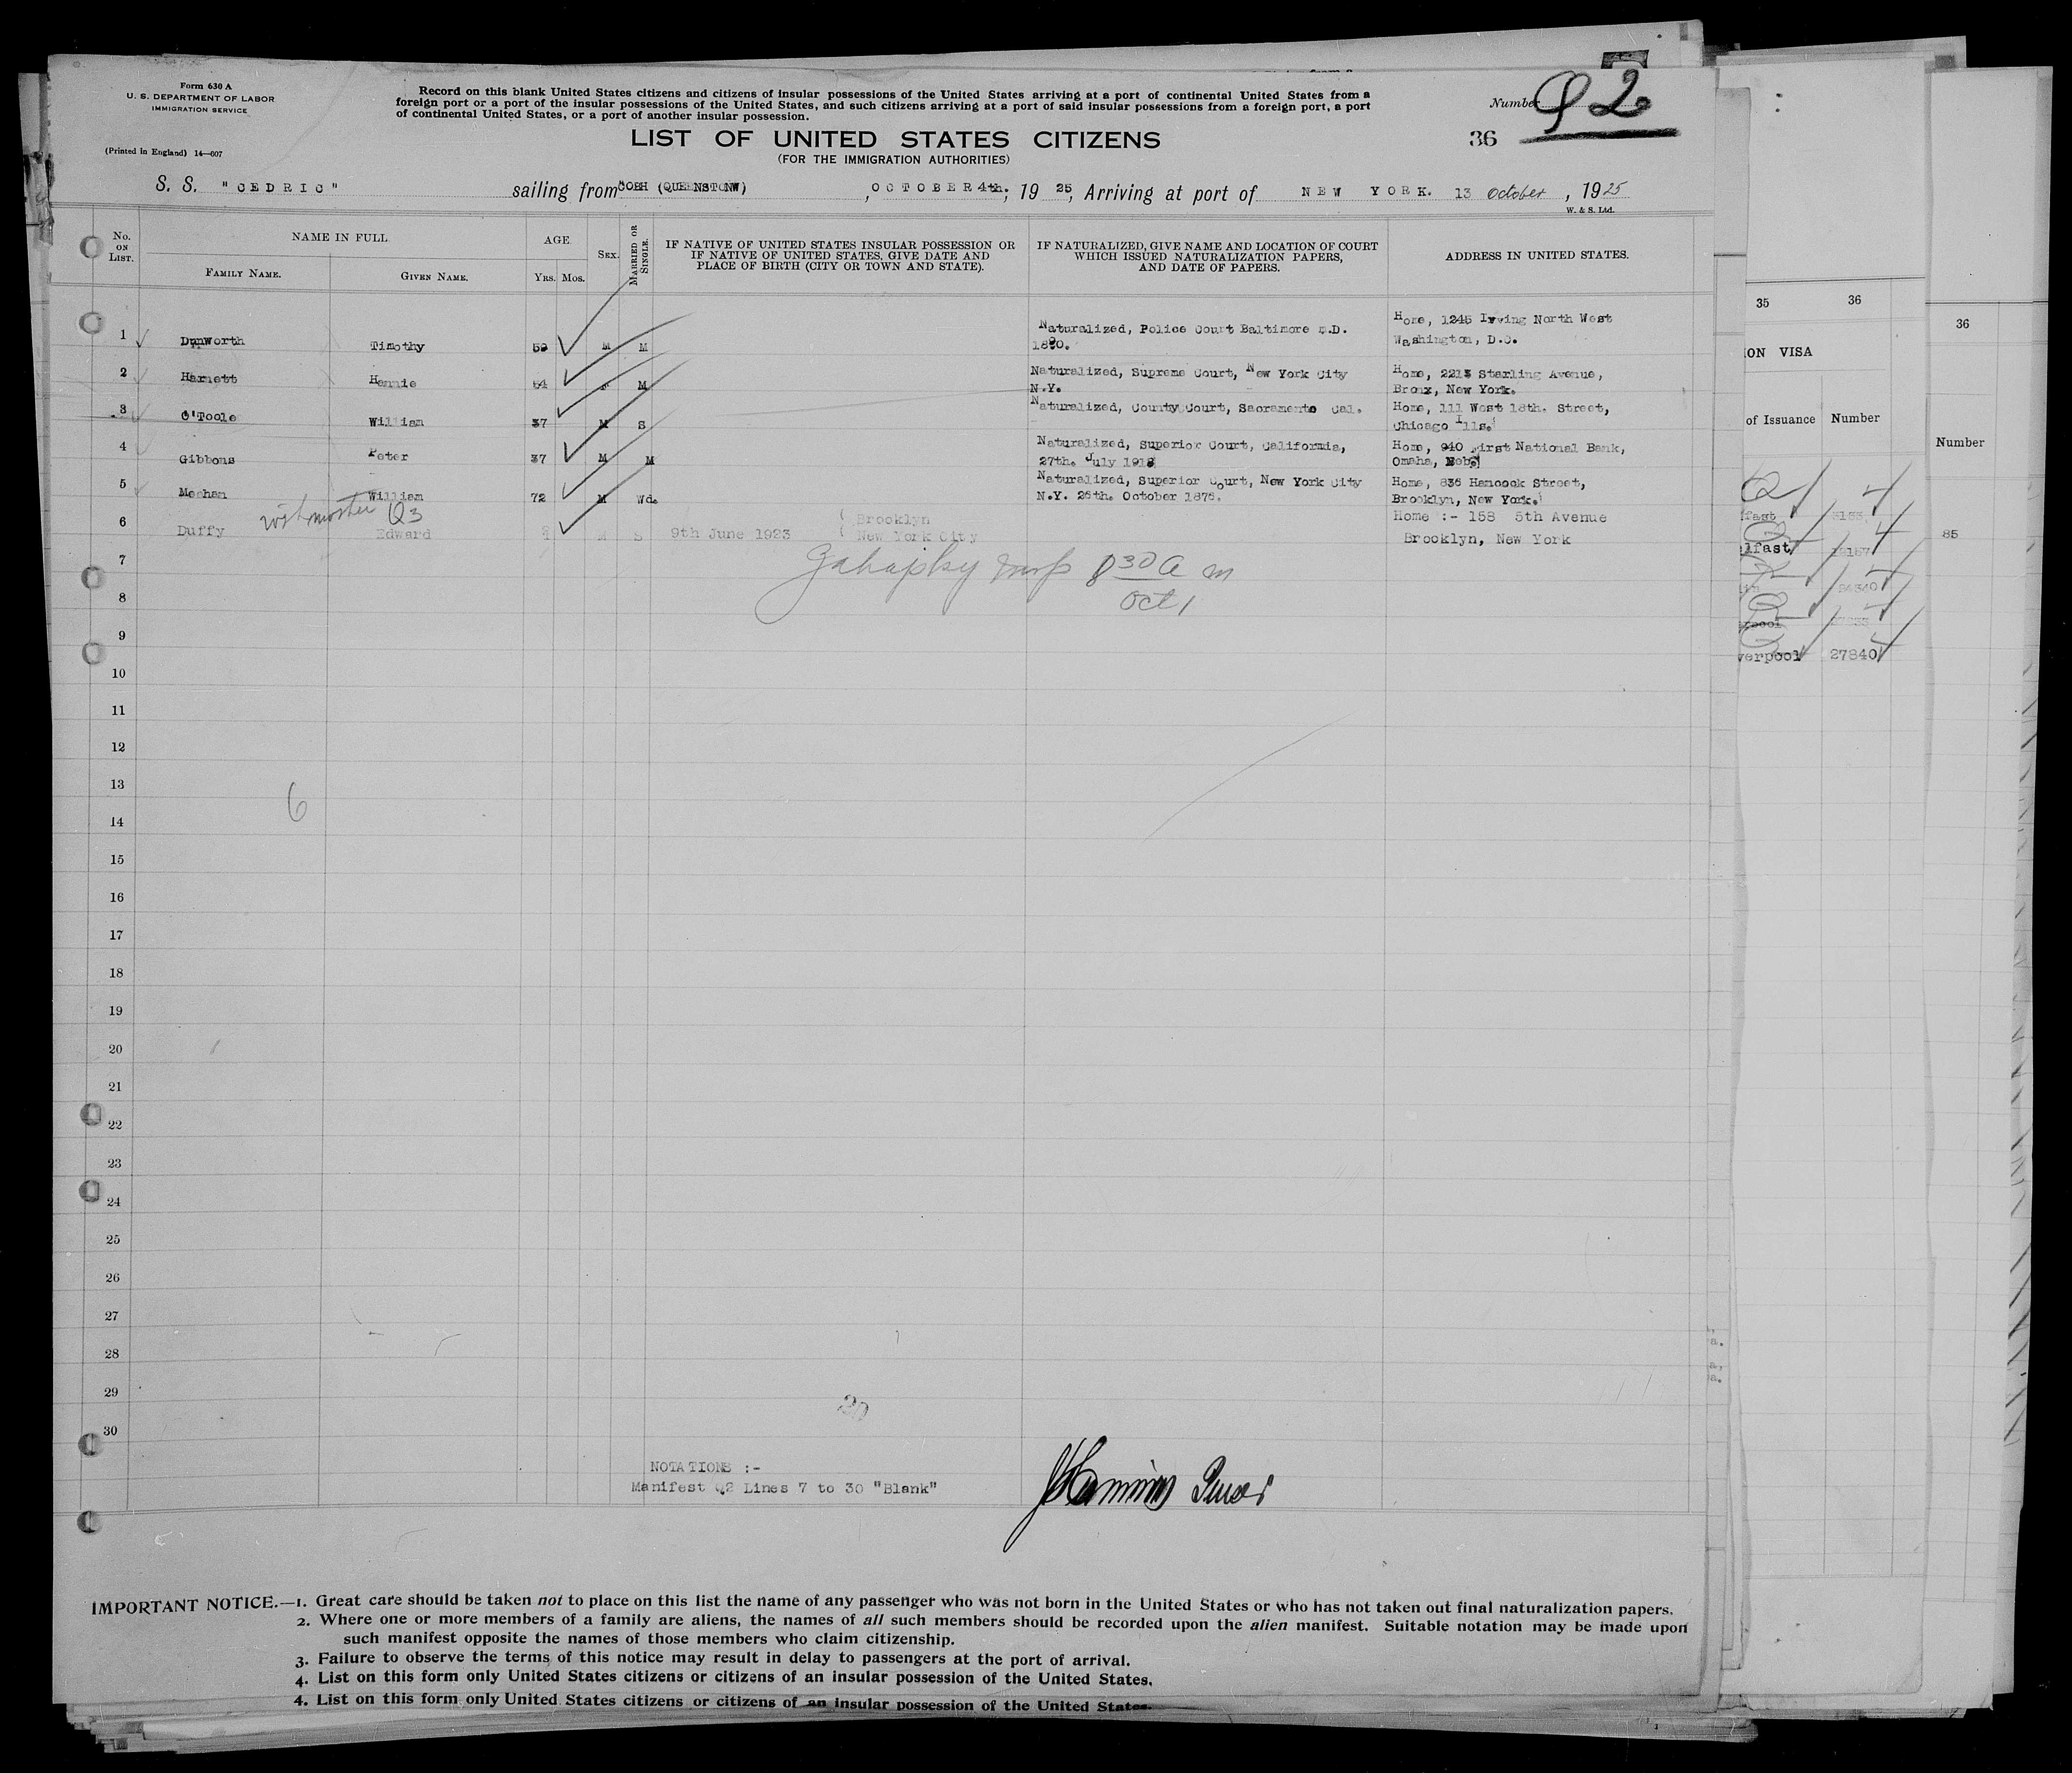 Form 630 A
U. S. DEPARTMENT OF LABOR
IMMIGRATION SERVICE
(Printed in England) 14—607
Record on this blank United States citizens and citizens of insular possessions of the United States arriving at a port of continental United States from a
foreign port or a port of the insular possessions of the United States, and such citizens arriving at a port of said insular possessions from a foreign port, a port
of continental United States, or a port of another insular possession.
Number Q 2
36
LIST OF UNITED STATES CITIZENS
(FOR THE IMMIGRATION AUTHORITIES)
S. S. "CEDRIC" sailing from COBH (QUEENSTONW), OCTOBER 4th. , 19 25, Arriving at port of NEW YORK. 13 October , 1925
W. & S. Ltd.
No. ON LIST.
NAME IN FULL
FAMILY NAME.
GIVEN NAME.
AGE
YRS. MOS.
SEX.
MARRIED OR SINGLE.
IF NATIVE OF UNITED STATES INSULAR POSSESSION OR
IF NATIVE OF UNITED STATES, GIVE DATE AND
PLACE OF BIRTH (CITY OR TOWN AND STATE).
IF NATURALIZED, GIVE NAME AND LOCATION OF COURT
WHICH ISSUED NATURALIZATION PAPERS,
AND DATE OF PAPERS.
ADDRESS IN UNITED STATES.
1 Dunworth Timothy M M Naturalized, Police Court Baltimore M.D. Home, 1245 Irving North West
Washington, D.C.
2 Harnett Hannie 54 F M Naturalized, Supreme Court, New York City Home, 2213 Starling Avenue,
N.Y. Bronx, New York.
3 O'Toole William 37 M S Naturalized, County Court, Sacramento Cal. Home, 111 West 18th. Street,
Chicago Ills.
4 Gibbons Peter 37 M M Naturalized, Superior Court, California, Home, 940 First National Bank,
27th. July Omaha, Neb.
5 Meehan William 72 M Wd. Naturalized, Superior Court, New York City Home, 836 Hancock Street,
N.Y. 26th. October 1876. Brooklyn, New York.
Q3
6 Duffy Edward M S 9th June 1923 ( Brooklyn Home :- 158 5th Avenue
( New York City Brooklyn, New York
7
8 30 A m
8
Oct 1
9
10
11
12
13
6
14
15
16
17
18
19
20
21
22
23
24
25
26
27
28
29
20
30
NOTATIONS :-
Manifest Q2 Lines 7 to 30 "Blank"
IMPORTANT NOTICE.—1. Great care should be taken not to place on this list the name of any passenger who was not born in the United States or who has not taken out final naturalization papers.
2. Where one or more members of a family are aliens, the names of all such members should be recorded upon the alien manifest. Suitable notation may be made upon
such manifest opposite the names of those members who claim citizenship.
3. Failure to observe the terms of this notice may result in delay to passengers at the port of arrival.
4. List on this form only United States citizens or citizens of an insular possession of the United States.
4. List on this form only United States citizens or citizens of an insular possession of the United States.
35 36
ION VISA
of Issuance Number
lfast
verpool 27840
36
Number
85